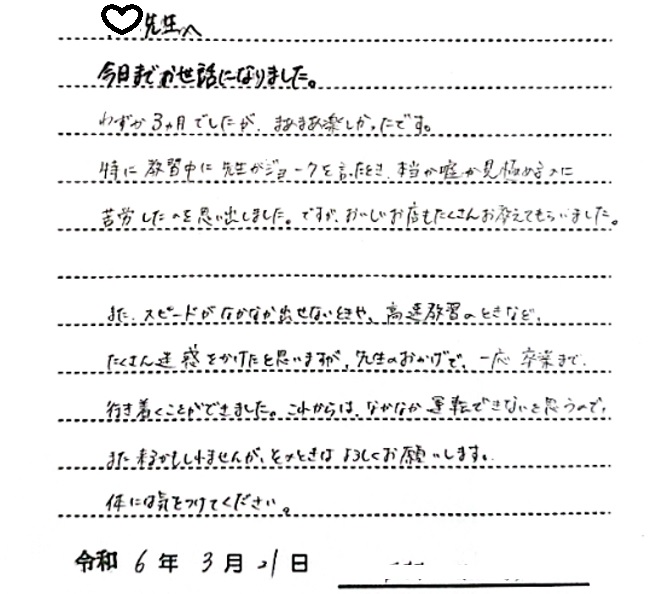 先生へ
今日までお世話になりました。
わずか3ヵ月でしたが、まあまあ楽しかったです。
特に教習中に先生がジョークを言ったとき、本当か嘘か見極めるのに
苦労したのを思い出しました。ですが、おいしいお店もたくさんお教えてもらいました。
また、スピードがなかなか出せないときや、高速教習のときなど、
たくさん迷惑をかけたと思いますが、先生のおかげで、一応卒業まで、
行き着くことができました。これからは、なかなか運転できないと思うので、
また来るかもしれませんが、そのときはよろしくお願いします。
体には気をつけてください。
令和 6年 3月 21日